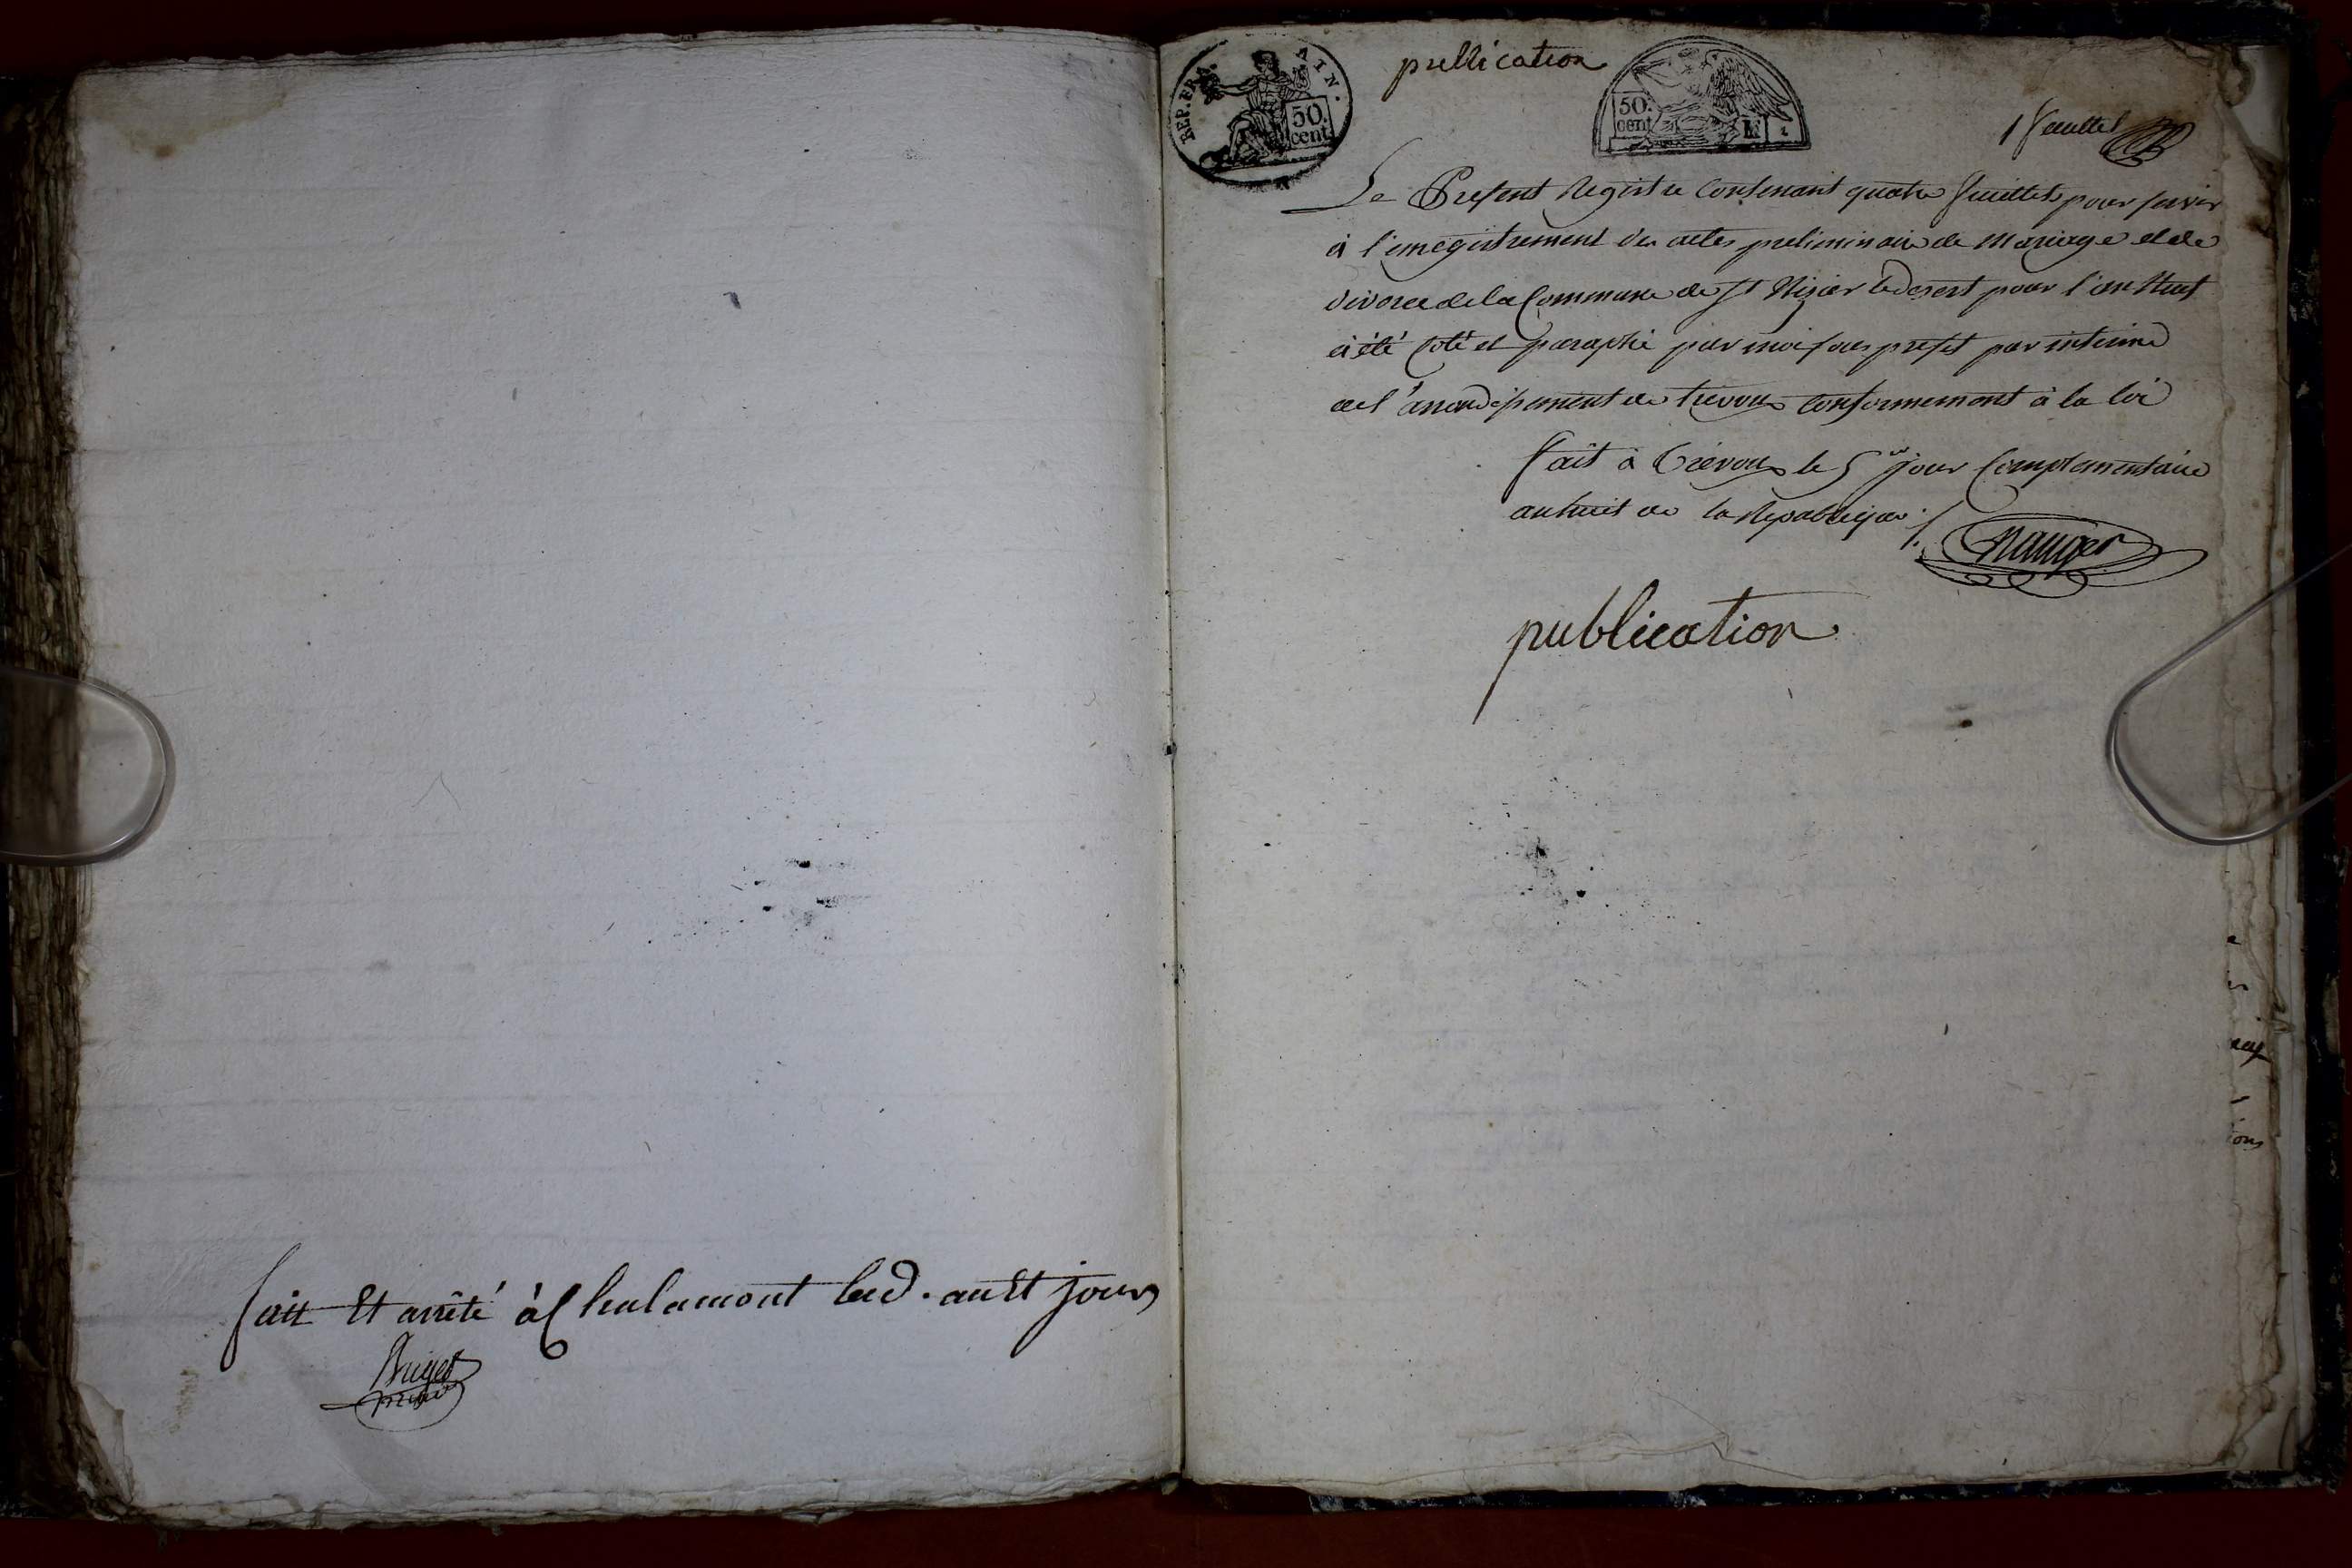 fait Et arrêté à Chalamont led. an Et jour
REP. FRA.
AIN.
50.
cent.
publication
50.
cent
1 feuillet
Le Present Registre Contenant quatre feuillets pour servir
à l'enregistrement des actes preliminaire de Mariage et de
divorce de la Commune de St Nizier le desert pour l'an Neuf
à été Coté et paraphé par moi sous prefet par interim
de l'arrondissement de trevoux conformement à la loi
fait à Trévoux le 5me jour Complementaire
an huit de la Republique ./.
publication